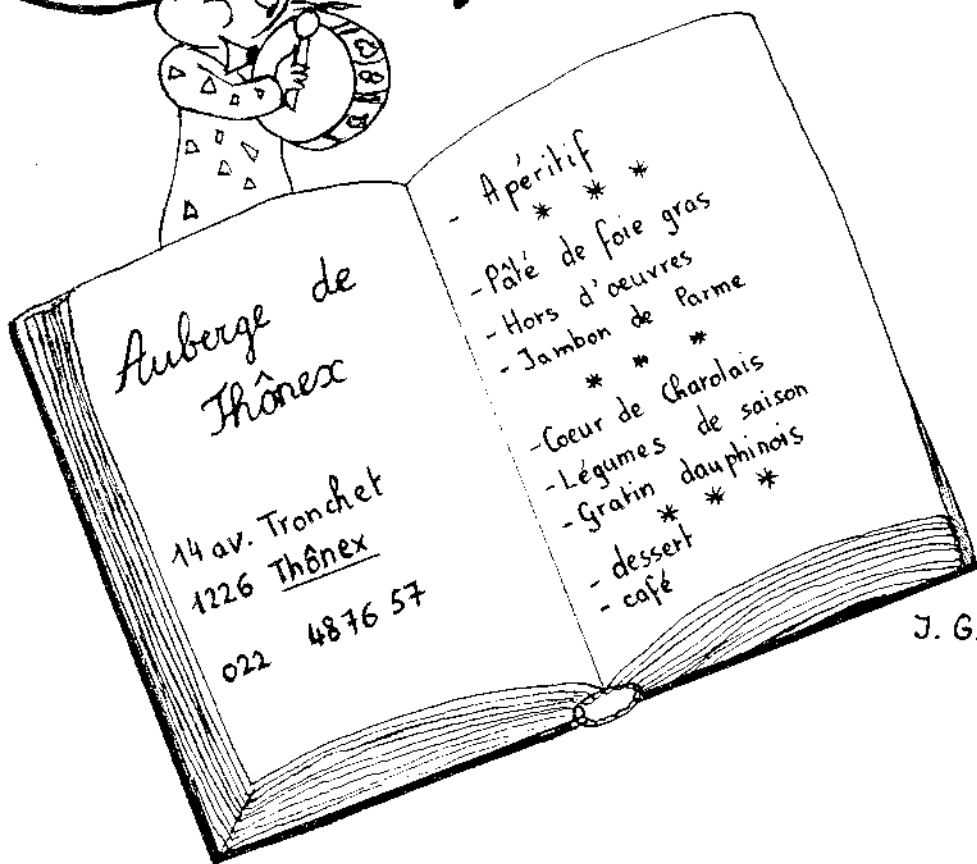 Auberge de
Thônex
14 av. Tronchet
1226 Thônex
022 48 76 57
- Apéritif
* * *
- Pâté de foie gras
- Hors d'oeuvres
- Jambon de Parme
* * *
- Coeur de Charolais
- Légumes de saison
- Gratin dauphinois
* * *
- dessert
- café
J. G.